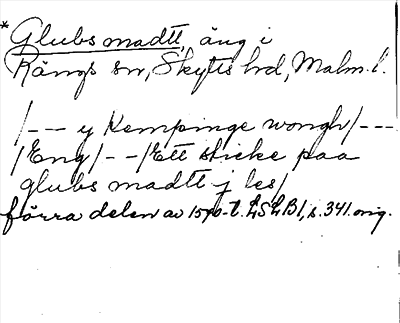 *Glubs madtt, äng i
Rängs sn, Skytts hd, Malm. l.
/--- y Kempinge wongh/---
/Eng/--/Ett sticke paa
glubs madtt j les/
förra delen av 1570-t. LSLB1, s. 341. orig.